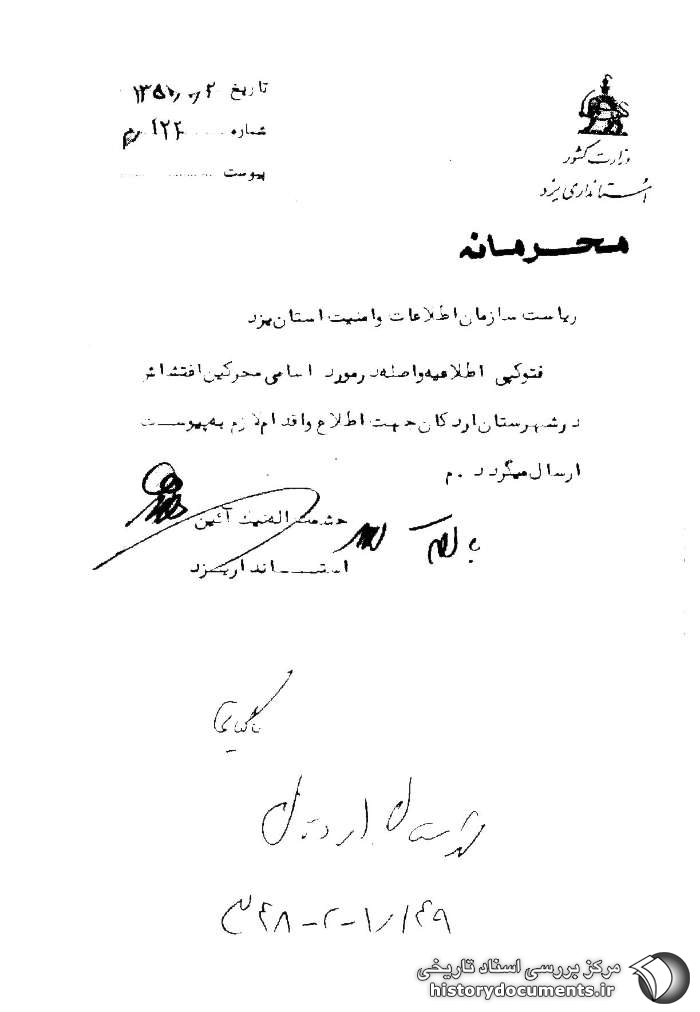 وزارت کشور
استانداری یزد
تاریخ
شماره ۱۲۴ م
پیوست
محرمانه
ریاست سازمان اطلاعات و امنیت استان یزد
فتوکپی اطلاعیه واصله در مورد اسامی محرکین اغتشاش
در شهرستان اردکان جهت اطلاع و اقدام لازم به پیوست
ارسال میگردد . م
حشمت اله نیک آئین
استاندار یزد
بایگانی
شهرستان اردکان
مرکز بررسی اسناد تاریخی
historydocuments.ir